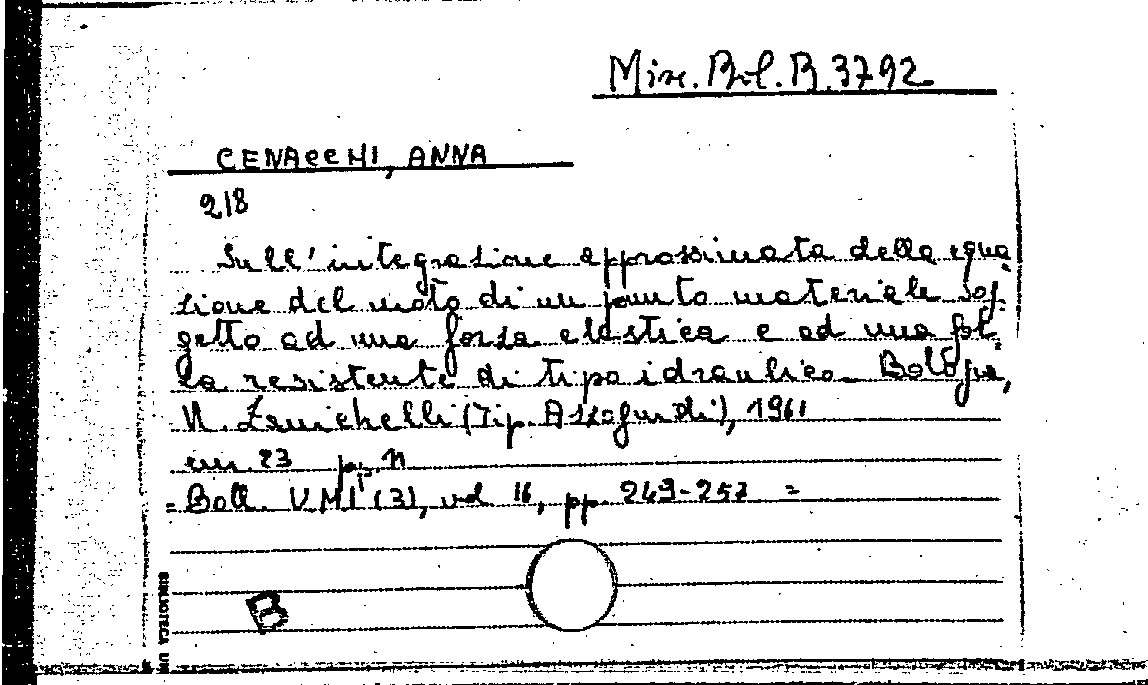 Misc. Bol. B. 3792
CENACCHI, ANNA
218
Sull'integrazione approssimata della equa
zione del moto di un punto materiale sog-
getto ad una forza elastica e ad una for-
za resistente di tipo idraulico. Bologna,
N. Zanichelli (Tip. Azzoguidi), 1961
cm. 23
= Boll. UMI (3), vol 16, pp. 249-257 =
B
BIBLIOTECA